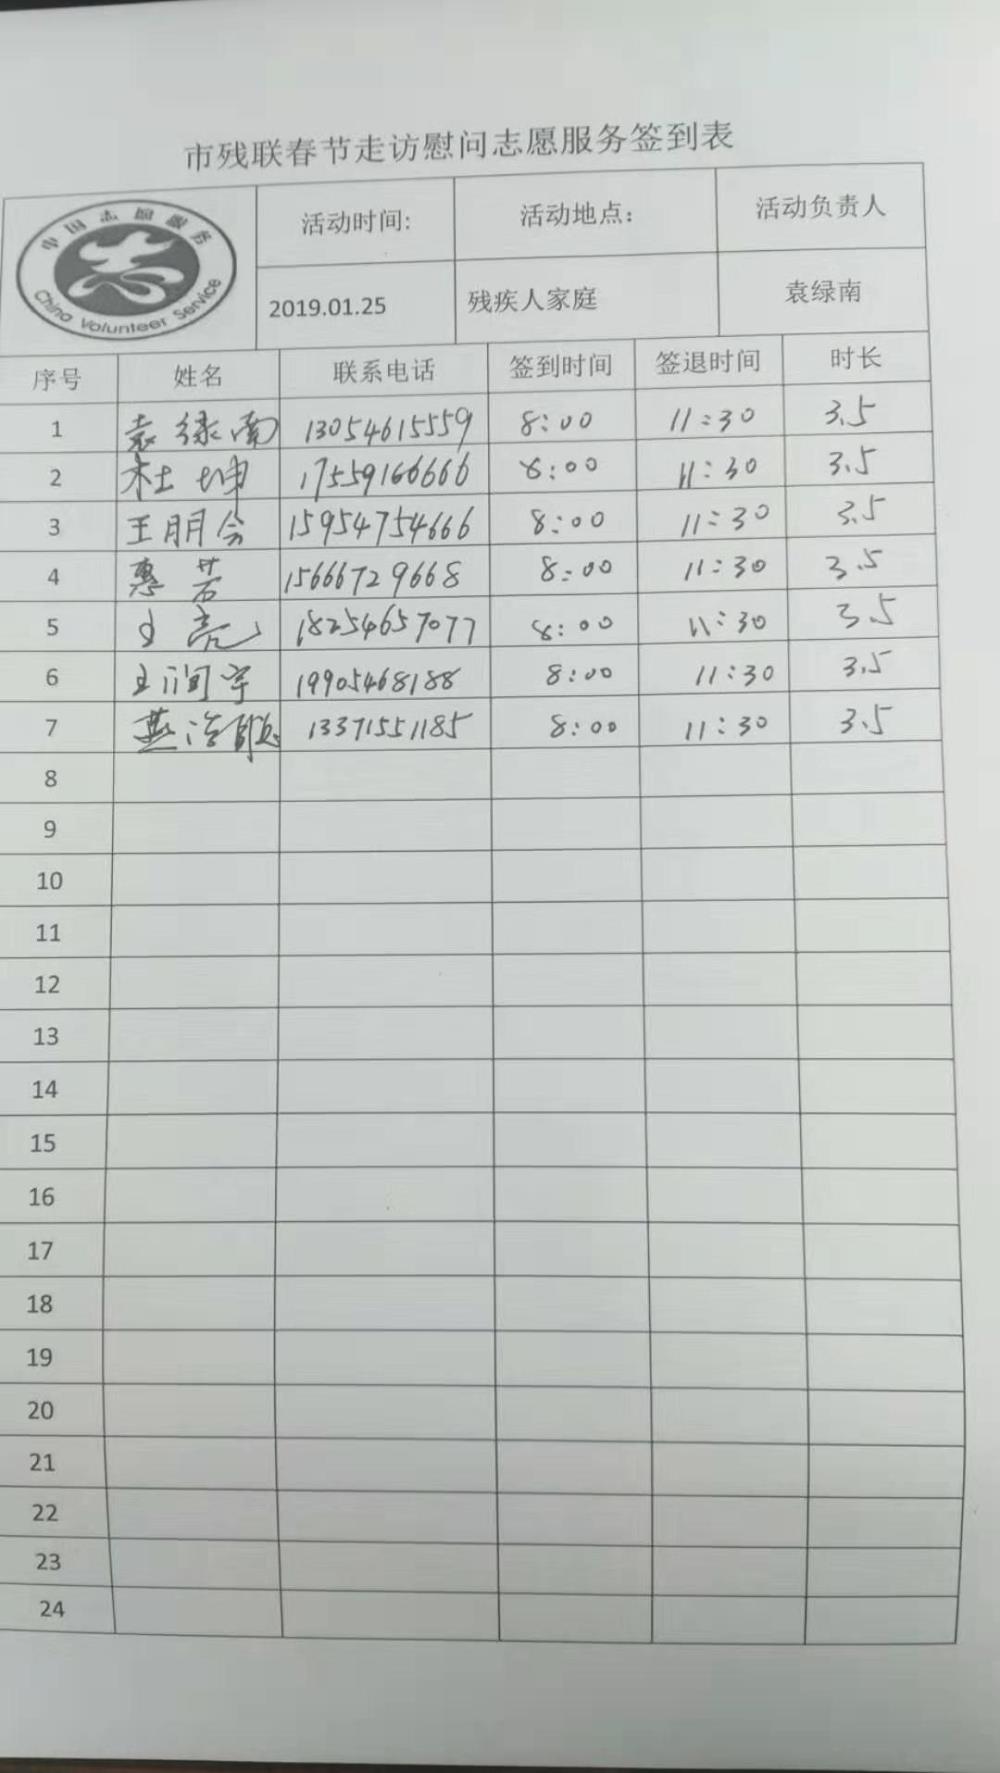 市残联春节走访慰问志愿服务签到表
中国志愿服务
China Volunteer Service
活动时间: 活动地点： 活动负责人
2019.01.25 残疾人家庭 袁绿南
序号 姓名 联系电话 签到时间 签退时间 时长
1 袁绿南 13054615559 8:00 11:30 3.5
2 杜坤 17559166666 8:00 11:30 3.5
3 王朋会 15954754666 8:00 11:30 3.5
4 惠芳 15666729668 8:00 11:30 3.5
5 王亮 18254657077 8:00 11:30 3.5
6 王润宇 19905468188 8:00 11:30 3.5
7 燕 13371551185 8:00 11:30 3.5
8
9
10
11
12
13
14
15
16
17
18
19
20
21
22
23
24